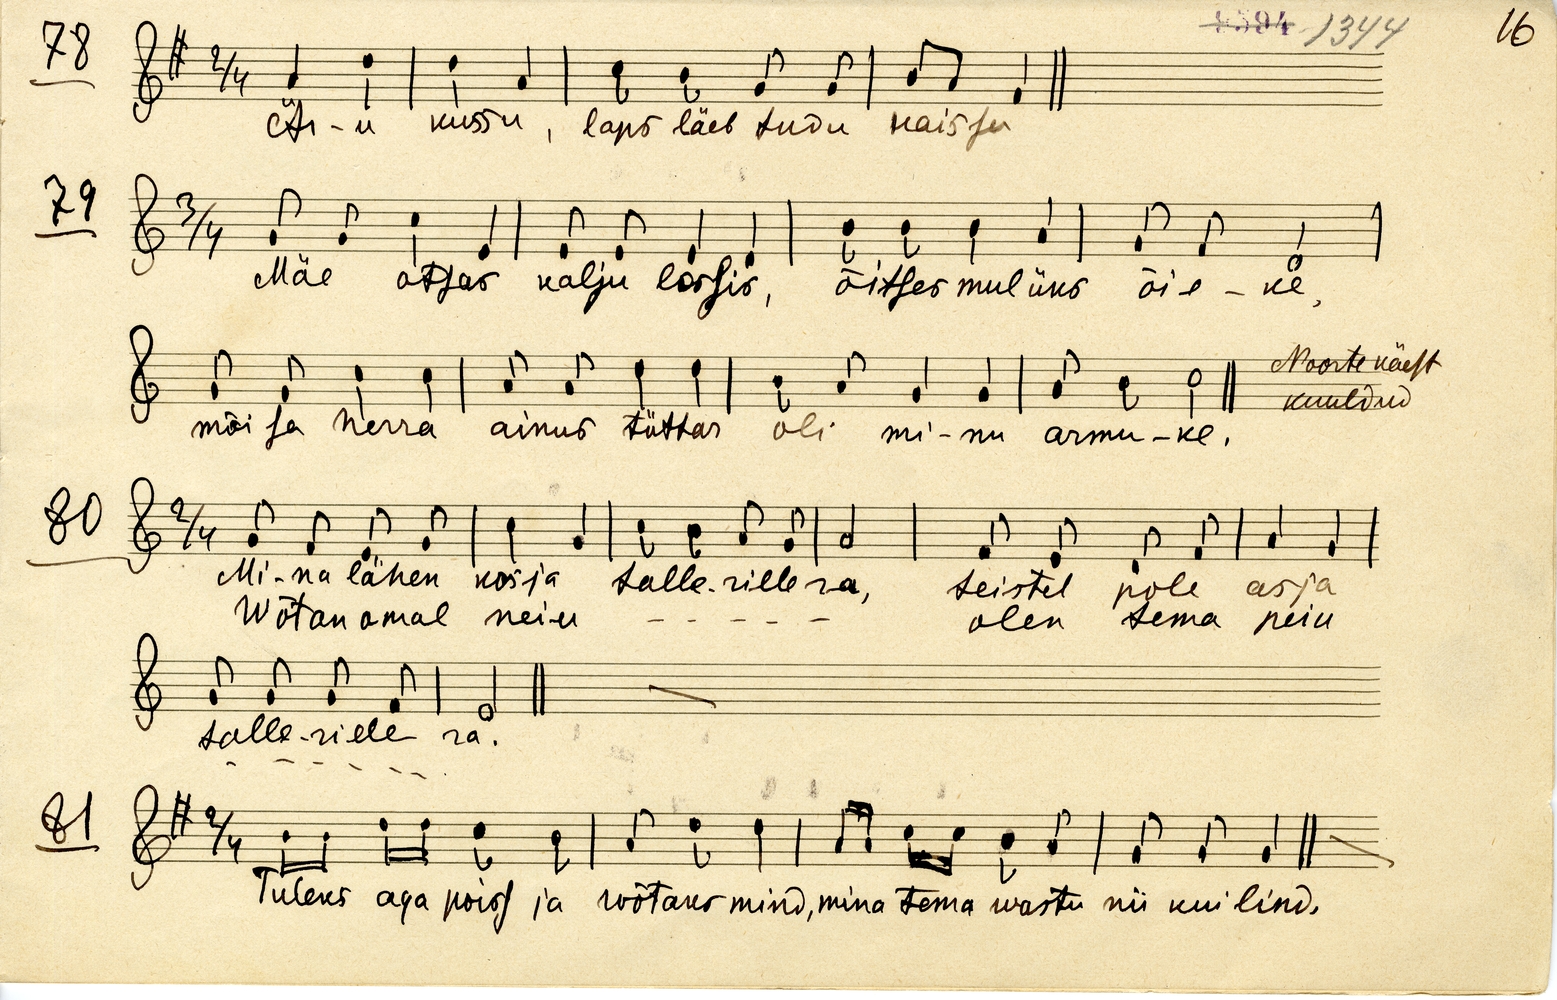 1394 1344 16
78 2/4
Äi-u kussu, laps läeb tudu kaissu
79 3/4
Mäe otsas kalju lossis, õitses mul üks õie-ke,
Noorte käest
kuuldud
mõisa herra ainus tüttar oli mi-nu armu-ke.
80 2/4
Mi-na lähen kosja talle-rillera, teistel pole asja
Wõtan omal neiu - - - - - olen tema peiu
talle-rielle ra.
- - - - - -
81 2/4
Tuleks aga poiss ja wõtaks mind, mina tema wastu nii kui lind.